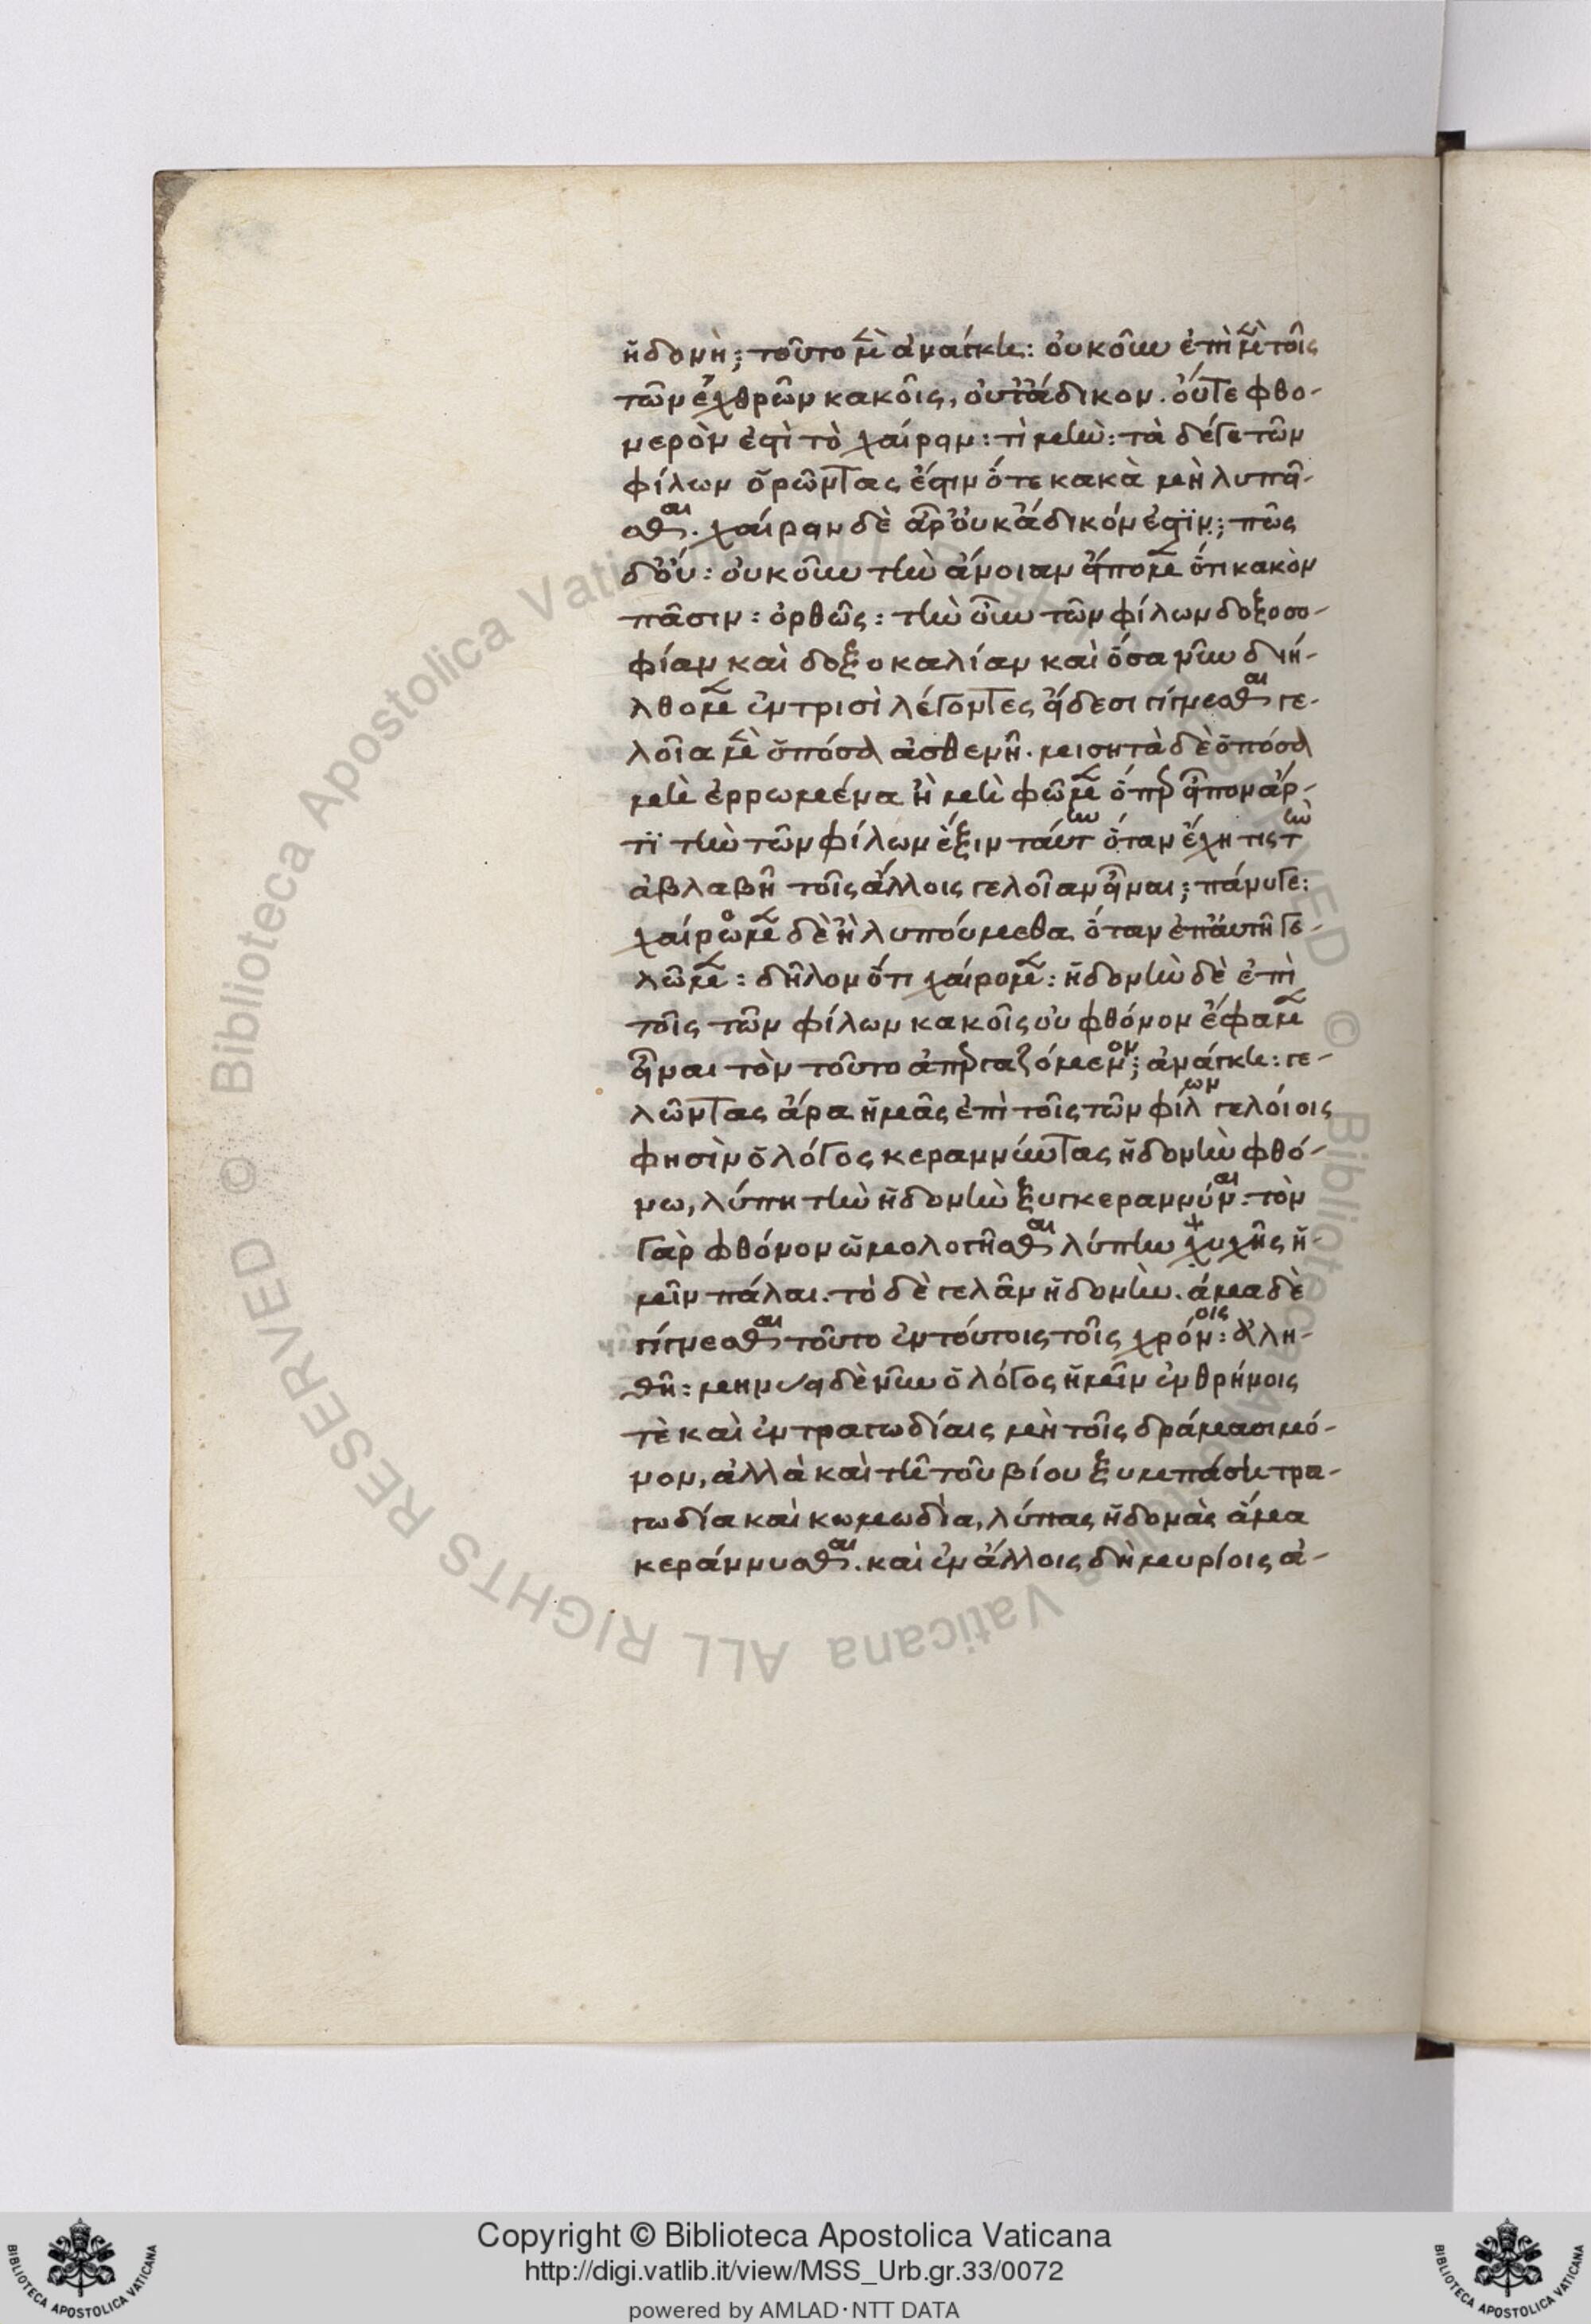 ἡδονὴ; τοῦτο μὲν ἀνάγκη: οὐκοῦν ἐπὶ μὲν τοῖς
τῶν ἐχθρῶν κακοῖς, οὐτ' ἄδικον. οὔτε φθο-
νερὸν ἐστὶ τὸ χαίρειν: τὶ μὴν: τὰ δέ γε τῶν
φίλων ὁρῶντας ἔστιν ὅτε κακὰ μὴ λυπεῖ-
σθαι. χαίρειν δὲ ἆρ' οὐκ ἄδικόν ἐστϊν; πῶς
δ' οὔ: οὐκοῦν τὴν ἄνοιαν εἴπομεν ὅτι κακὸν
πᾶσιν: ὀρθῶς: τὴν οὖν τῶν φίλων δοξοσο-
φίαν καὶ δοξοκαλίαν καὶ ὅσα νῦν διή-
λθομεν ἐν τρισὶ λέγοντες εἴδεσι γίγνεσθαι γε-
λοῖα μὲν ὁπόσα ἀσθενῆ. μισητὰ δὲ ὁπόσα
μὴ ἐρρωμένα ἢ μὴ φῶμεν ὅπερ εἶπον ἄρ-
τϊ τὴν τῶν φίλων ἕξιν ταύτην ὅταν ἔχη τις τὴν
ἀβλαβῆ τοῖς ἄλλοις γελοῖαν εἶναι; πάνυ γε:
χαίρωομεν δὲ ἢ λυπούμεθα ὅταν ἐπ' αὐτῆ γε-
λῶμεν: δῆλον ὅτι χαίρομεν: ἡδονὴν δὲ ἐπὶ
τοῖς τῶν φίλων κακοῖς οὐ φθόνον ἔφαμεν
εἶναι τὸν τοῦτο ἀπεργαζόμενον; ἀνάγκη: γε-
λῶντας ἄρα ἡμᾶς ἐπὶ τοῖς τῶν φίλων γελοίοις
φησὶν ὁ λόγος κεραννύντας ἡδονὴν φθό-
νω, λύπη τὴν ἡδονὴν ξυγκεραννύναι. τὸν
γὰρ φθόνον ὡμολογῆσθαι λύπην ψυχῆς ἡ-
μῖν πάλαι. τὸ δὲ γελᾶν ἡδονὴν. ἅμα δὲ
γίγνεσθαι τοῦτο ἐν τούτοις τοῖς χρόνοις: ἀλη-
θῆ: μηνύει δὲ νῦν ὁ λόγος ἡμῖν ἐν θρήνοις
τὲ καὶ ἐν τραγωδίαις μὴ τοῖς δράμασι μό-
νον, ἀλλὰ καὶ τῆ τοῦ βίου ξυμπάση τρα-
γωδία καὶ κωμωδὶα, λύπας ἡδονὰς ἅμα
κεράννυσθαι. καὶ ἐν ἄλλοις δὴ μυρίοις ἀ-
© Biblioteca Apostolica Vaticana ALL RIGHTS RESERVED © Biblioteca Apostolica Vaticana ALL RIGHTS RESERVED
Copyright © Biblioteca Apostolica Vaticana
http://digi.vatlib.it/view/MSS_Urb.gr.33/0072
powered by AMLAD·NTT DATA
BIBLIOTECA APOSTOLICA VATICANA
BIBLIOTECA APOSTOLICA VATICANA